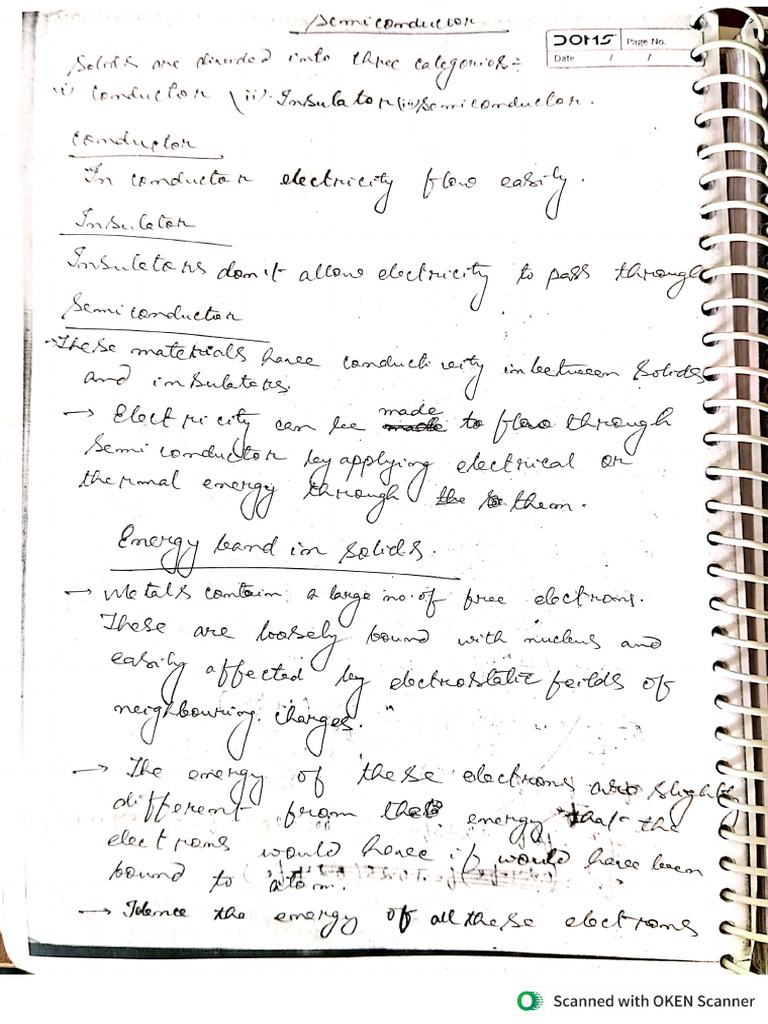 Semiconductor
DOMS Page No.
Date / /
Solids are divided into three categories:-
(i) Conductor (ii) Insulator (iii) Semiconductor.
Conductor
In conductor electricity flow easily.
Insulator
Insulators don't allow electricity to pass through
Semiconductor
→ These materials have conductivity in between solids
and insulators.
→ Electricity can be made to flow through
semiconductor by applying electrical or
thermal energy through them.
Energy band in solids.
→ Metals contain a large no. of free electrons.
These are loosely bound with nucleus and
easily affected by electrostatic feilds of
neighbouring charges.
→ The energy of these electrons are slightly
different from the energy that the
electrons would have if would have been
bound to atom.
→ Hence the energy of all these electrons
Scanned with OKEN Scanner